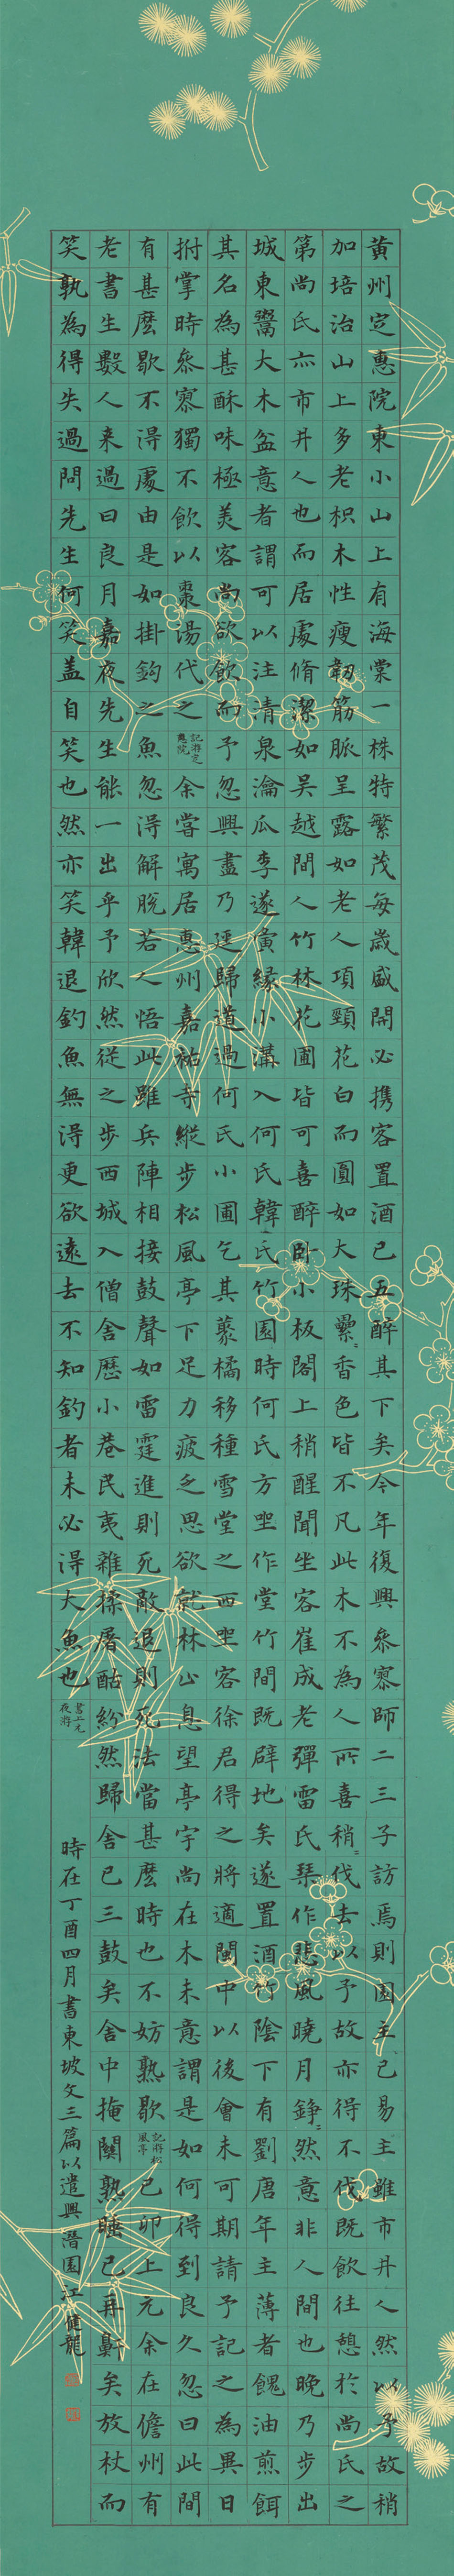 黄州定惠院東小山上有海棠一株特繁茂每歲盛開必攜客置酒已五醉其下矣今年復與參寥師二三子訪焉則園主已易主雖市井人然以予故稍
加培治山上多老枳木性瘦韌筋脈呈露如老人項頸花白而圓如大珠纍〻香色皆不凡此木不為人所喜稍〻伐去以予故亦得不伐既飲往憩於尚氏之
第尚氏亦市井人也而居處脩潔如吳越間人竹林花圃皆可喜醉卧小板閣上稍醒聞坐客崔成老彈雷氏琴作悲風曉月錚〻然意非人間也晚乃步出
城東鬻大木盆意者謂可以注清泉瀹瓜李遂夤緣小溝入何氏韓氏竹園時何氏方㘴作堂竹間既辟地矣遂置酒竹陰下有劉唐年主薄者餽油煎餌
其名為甚酥味極美客尚欲飲而予忽興盡乃逕歸道過何氏小圃乞其藂橘移種雪堂之西㘴客徐君得之將適閩中以後會未可期請予記之為異日
拊掌時參寥獨不飲以棗湯代之 記游定惠院 余嘗寓居惠州嘉祐寺縱步松風亭下足力疲乏思欲就林止息望亭宇尚在木末意謂是如何得到良久忽曰此間
有甚麽歇不得處由是如掛鈎之魚忽得解脫若人悟此雖兵陣相接鼓聲如雷霆進則死敵退則死法當甚麽時也不妨熟歇 記游松風亭 己卯上元余在儋州有
老書生數人来過曰良月嘉夜先生能一出乎予欣然從之步西城入僧舍歷小巷民夷雜揉屠酤紛然歸舍已三鼓矣舍中掩關熟睡已再鼾矣放杖而
笑孰為得失過問先生何笑盖自笑也然亦笑韓退釣魚無得更欲遠去不知釣者未必得大魚也 書上元夜游
時在丁酉四月書東坡文三篇以遣興潛園江健龍